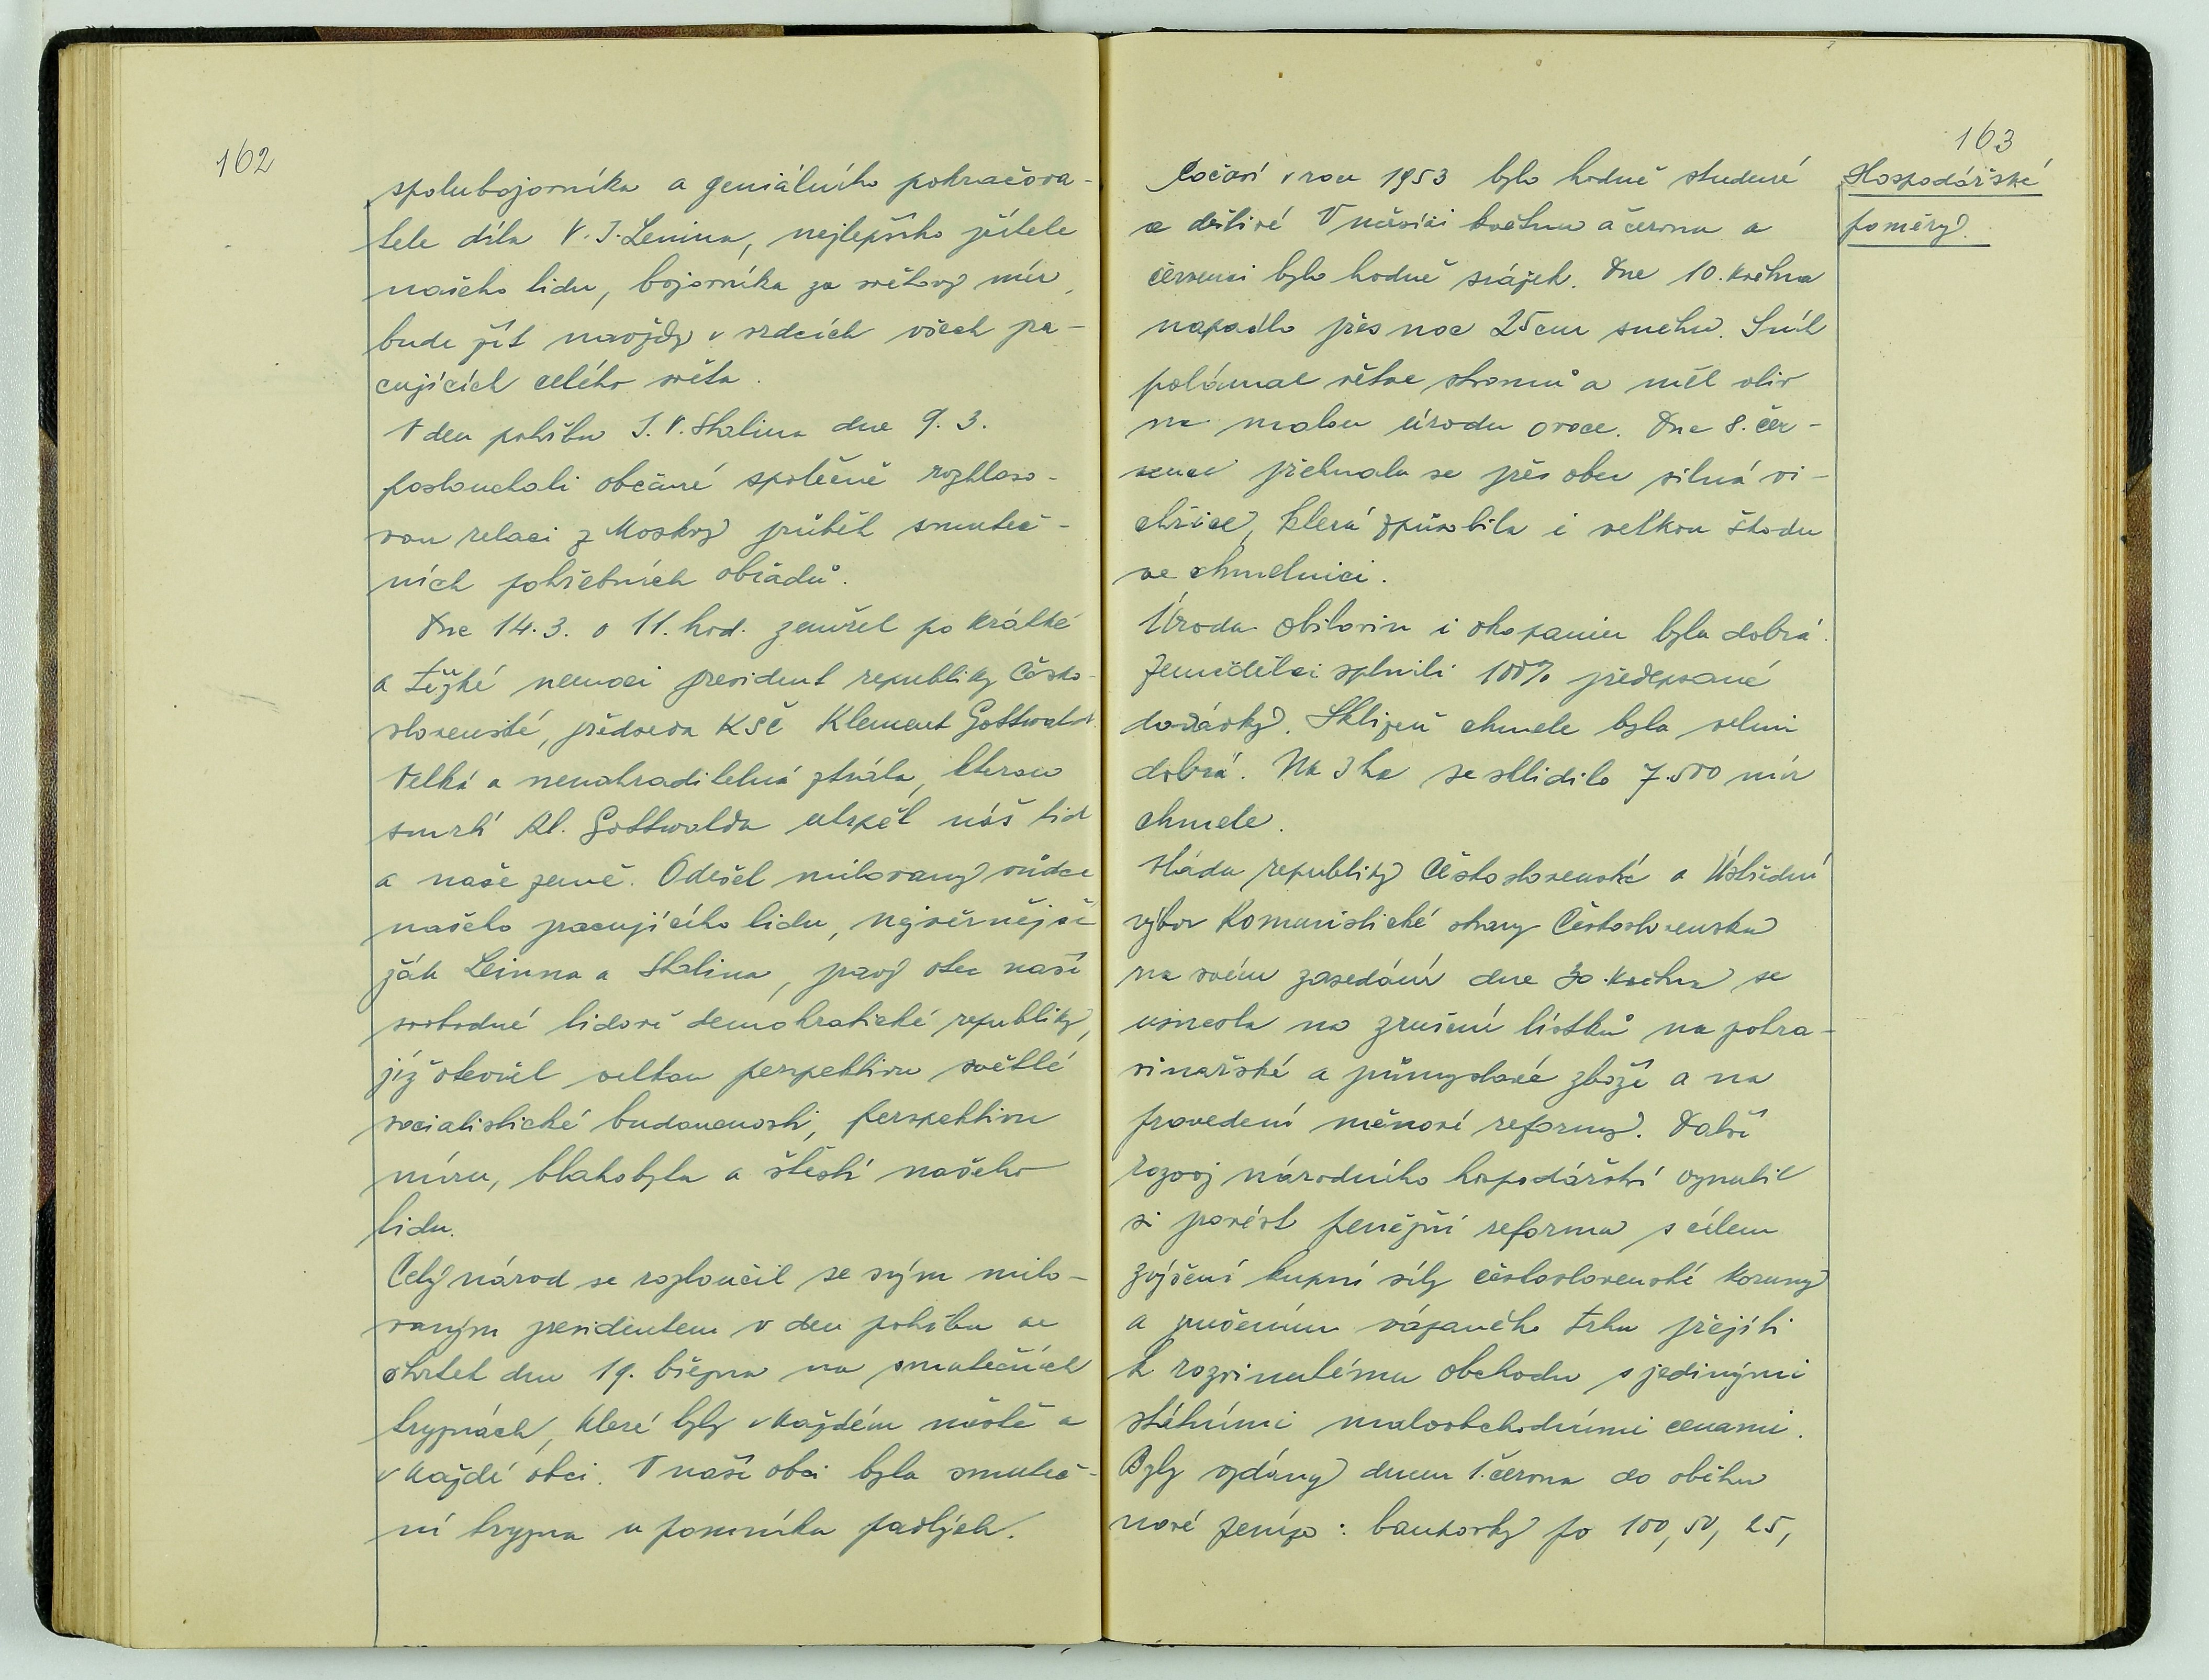 162
spolubojovníka a geniálního pokračova-
tele díla V. I. Lenina, nejlepšího přítele
našeho lidu, bojovníka za světový mír,
bude žít navždy v srdcích všech pra-
cujících celého světa.
V den pohřbu J. V. Stalina dne 9. 3.
poslouchali občané společně rozhlaso-
vou relaci z Moskvy průběh smuteč-
ních pohřebních obřadů.
Dne 14. 3. o 11. hod. zemřel po krátké
a těžké nemoci president republiky Česko-
slovenské, předseda KSČ Klement Gottwald.
Velká a nenahraditelná ztráta, kterou
smrtí Kl. Gottwalda utrpěl náš lid
a naše země. Odešel milovaný vůdce
našeho pracujícího lidu, nejvěrnější
žák Leinna a Stalina, pravý otec naší
svobodné lidově demokratické republiky,
jíž otevřel velkou perspektivu světlé
socialistické budoucnosti, perspektivu
míru, blahobytu a štěstí našeho
lidu.
Celý národ se rozloučil se svým milo-
vaným presidentem v den pohřbu ve
čtvrtek dne 19. března na smutečních
tryznách, které byly v každém městě a
v každé obci. V naší obci byla smuteč-
ní tryzna u pomníku padlých.
163
Hospodářské
poměry.
Počasí v roce 1953 bylo hodně studené
a deštivé V měsíci květnu a červnu a
červenci bylo hodně srážek. Dne 10. května
napadlo přes noc 25 cm sněhu. Sníh
polámal větve stromů a měl vliv
na malou úrodu ovoce. Dne 8. čer-
vence přehnala se přes obec silná vi-
chřice, která způsobila i velkou škodu
ve chmelnici.
Úroda obilovin i okopanin byla dobrá.
Zemědělci splnili 100% předepsané
dodávky. Sklizeň chmele byla velmi
dobrá. Na 3 ha se sklidilo 7.500 měr
chmele.
Vláda republiky Československé a Ústřední
výbor Komunistické strany Československa
na svém zasedání dne 30. května se
usnesla na zrušení lístků na potra-
vinářské a průmyslové zboží a na
provedení měnové reformy. Další
rozvoj národního hospodářství vynutil
si provést peněžní reforma s cílem
zvýšení kupní síly československé koruny
a zrušením vázaného trhu přejíti
k rozvinutému obchodu s jedinými
státními maloobchodními cenami.
Byly vydány dnem 1. června do oběhu
nové peníze: bankovky po 100, 50, 25,